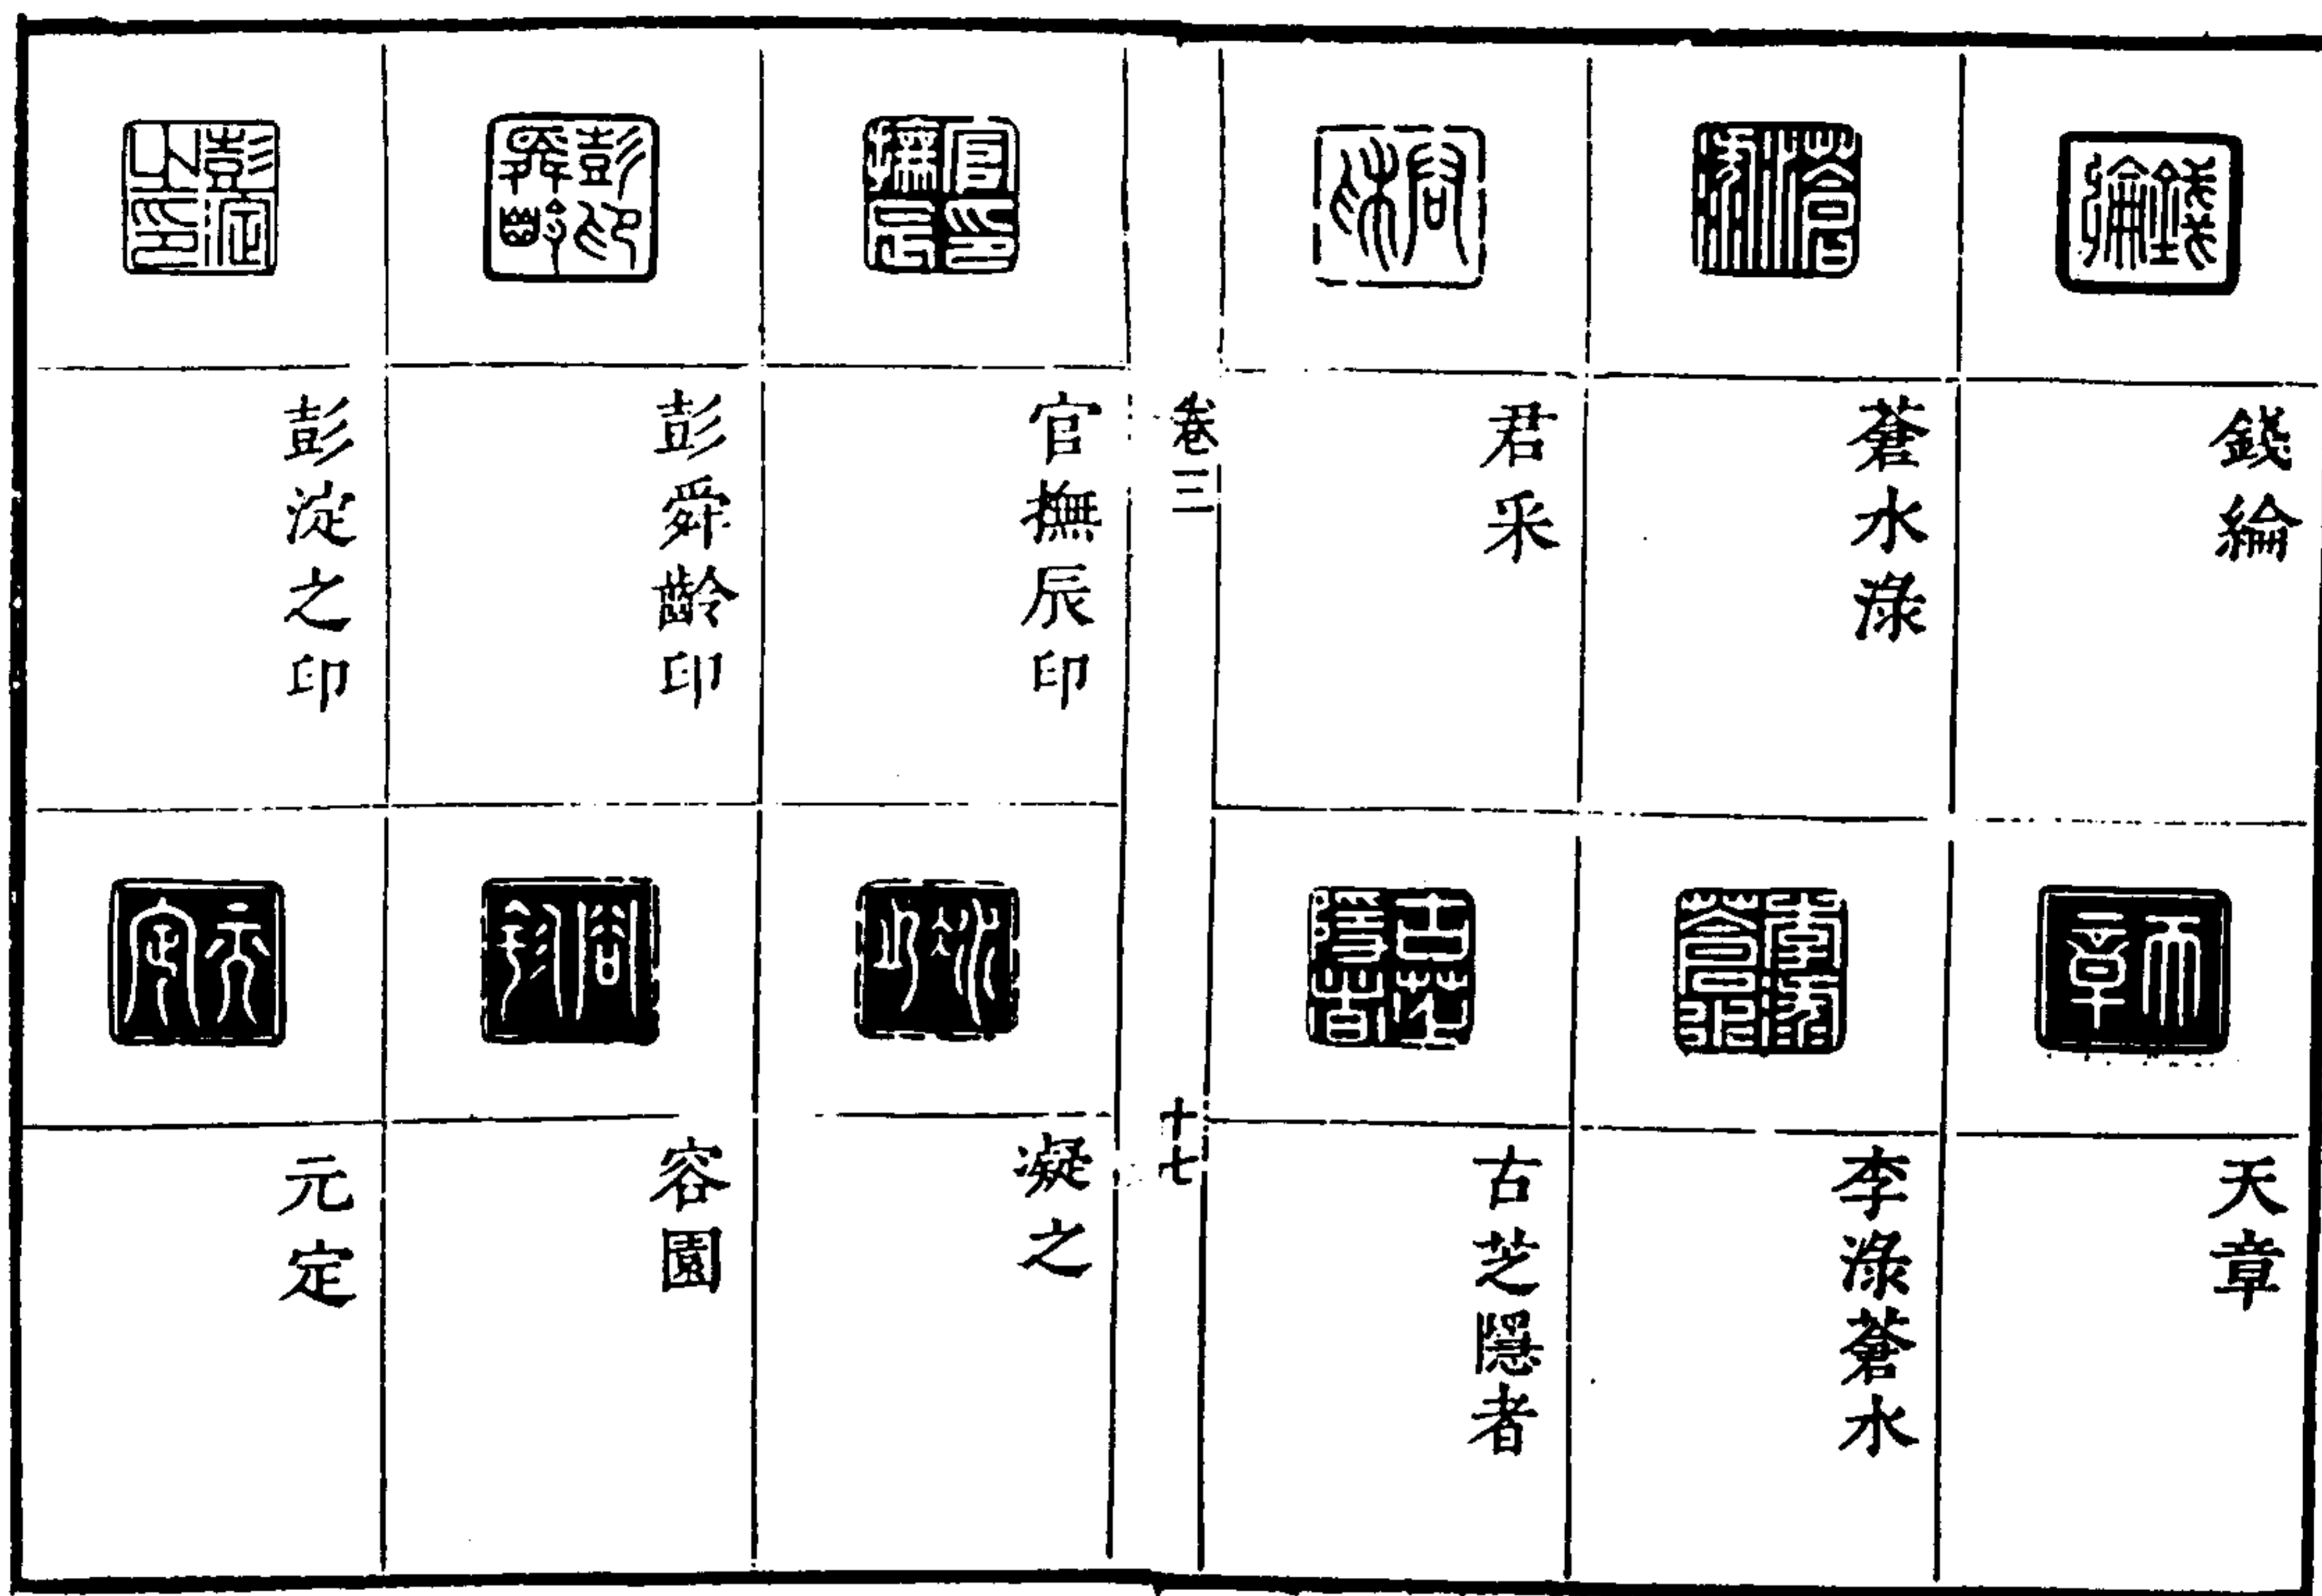 錢綸
天章
蒼水渌
李渌蒼水
君采
古芝隱者
卷三
十七
官撫辰印
凝之
彭舜齡印
容園
彭淀之印
元定